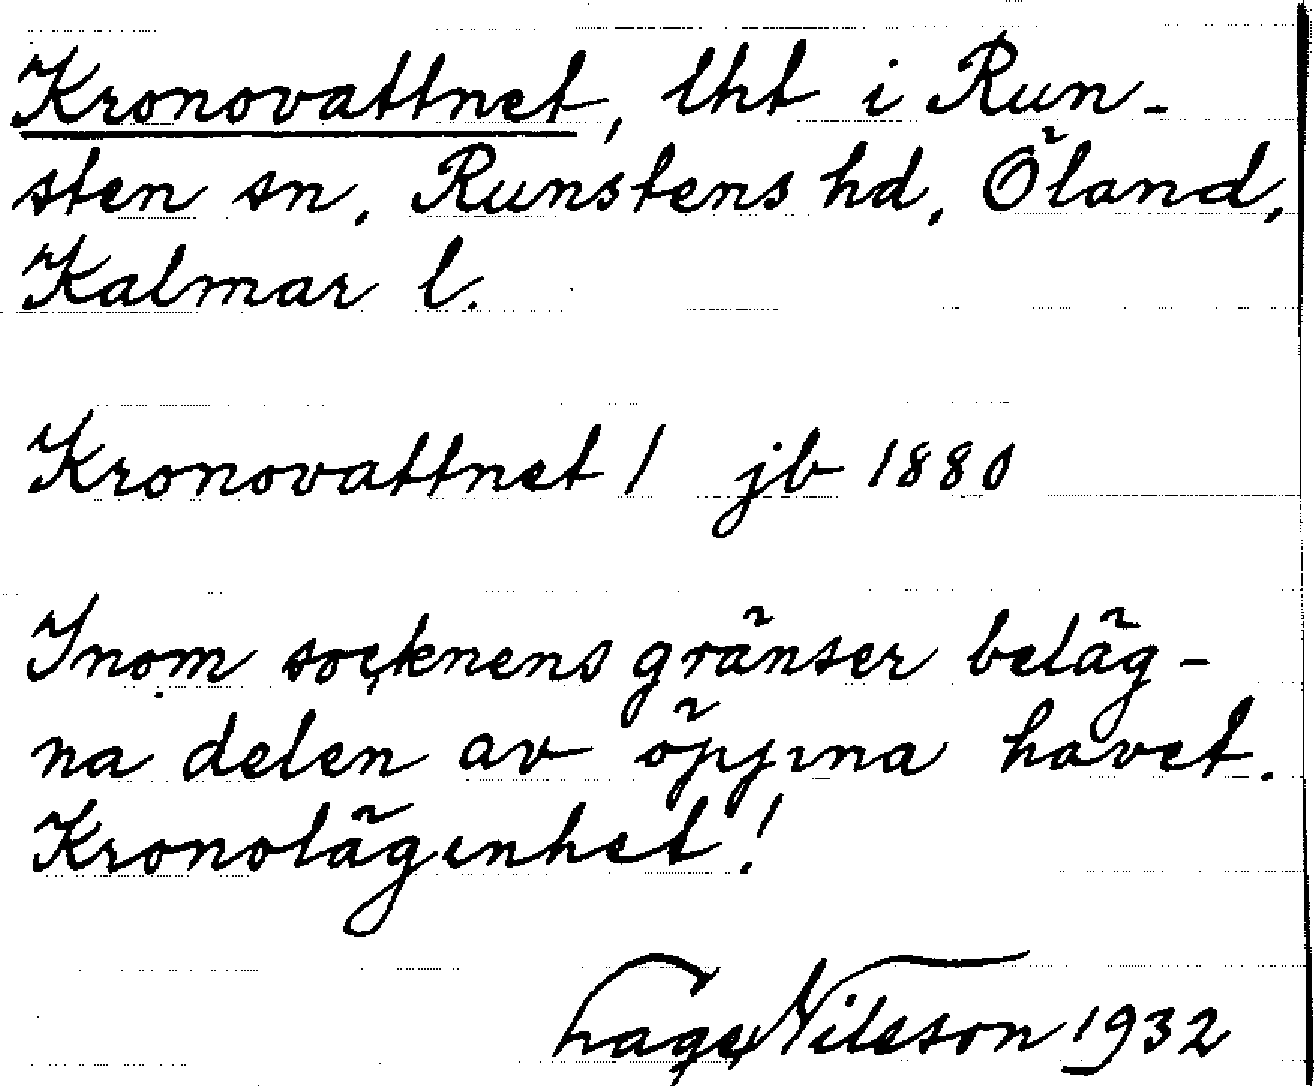 Kronovattnet, lht i Run-
sten sn, Runstens hd, Öland,
Kalmar l.
Kronovattnet 1 jb 1880
Inom socknens gränser beläg-
na delen av öppna havet.
Kronolägenhet!
Tage Nilsson 1932